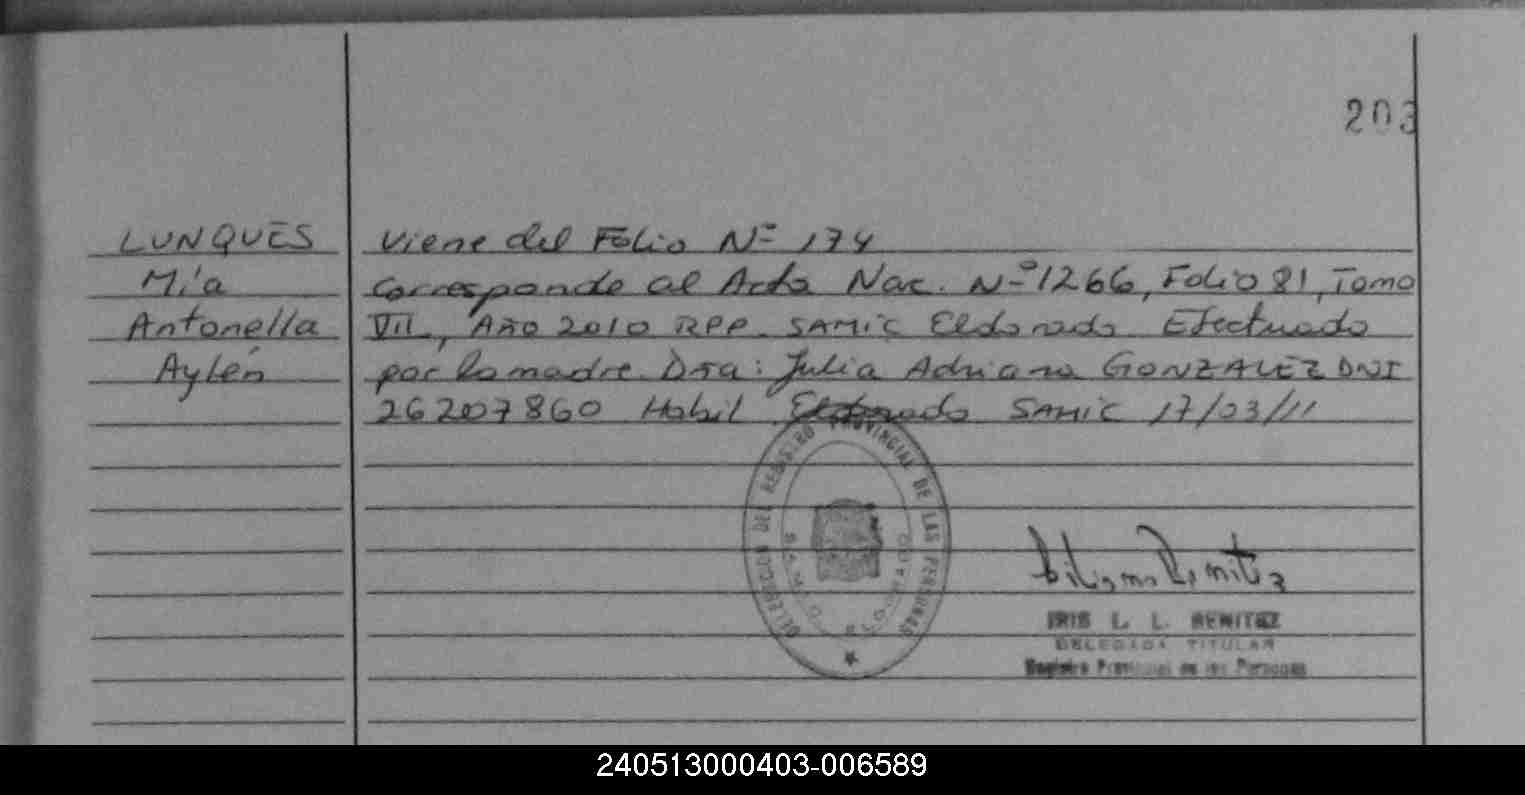 203
LUNQUES
Mía
Antonella
Aylén
Viene del Folio Nº 174
Corresponde al Acta Nac. Nº 1266, Folio 81, Tomo
VII, Año 2010 RPP. SAMIC Eldorado Efectuado
por la madre Dña: Julia Adriana GONZALEZ DNI
26207860 Habil Eldorado SAMIC 17/03/11
DELEGACION DEL REGISTRO PROVINCIAL DE LAS PERSONAS
S.A.M.I.C. ELDORADO
IRIS L. L. BENITEZ
DELEGADA TITULAR
Registro Provincial de las Personas
240513000403-006589